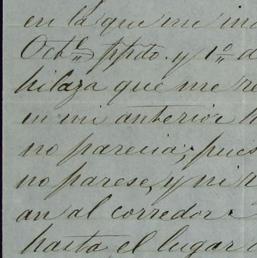 en la que me in
Octe. ppdo. y 1o d
hilaza que me re
en mi anterior h
no parecia; pues
no parese, y ni
an al corredor.
hasta el lugar